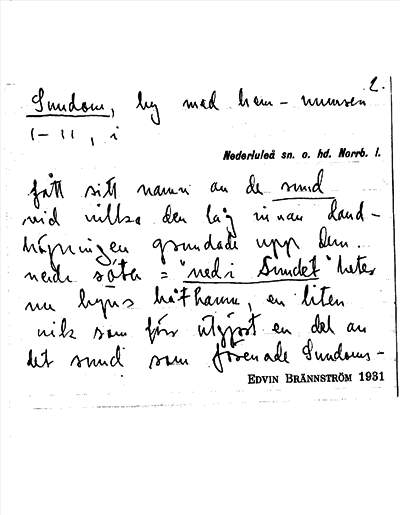 2.
Sundom, by med hem-nummer
1-11, i
Nederluleå sn. o. hd. Norrb. l.
fått sitt namn av de sund
vid vilka den låg innan land-
höjningen grundade upp dem.
nere söta = "ned i Sundet" heter
nu byns båthamn, en liten
vik som förr utgjort en del av
det sund som förenade Sundoms-
EDVIN BRÄNNSTRÖM 1931